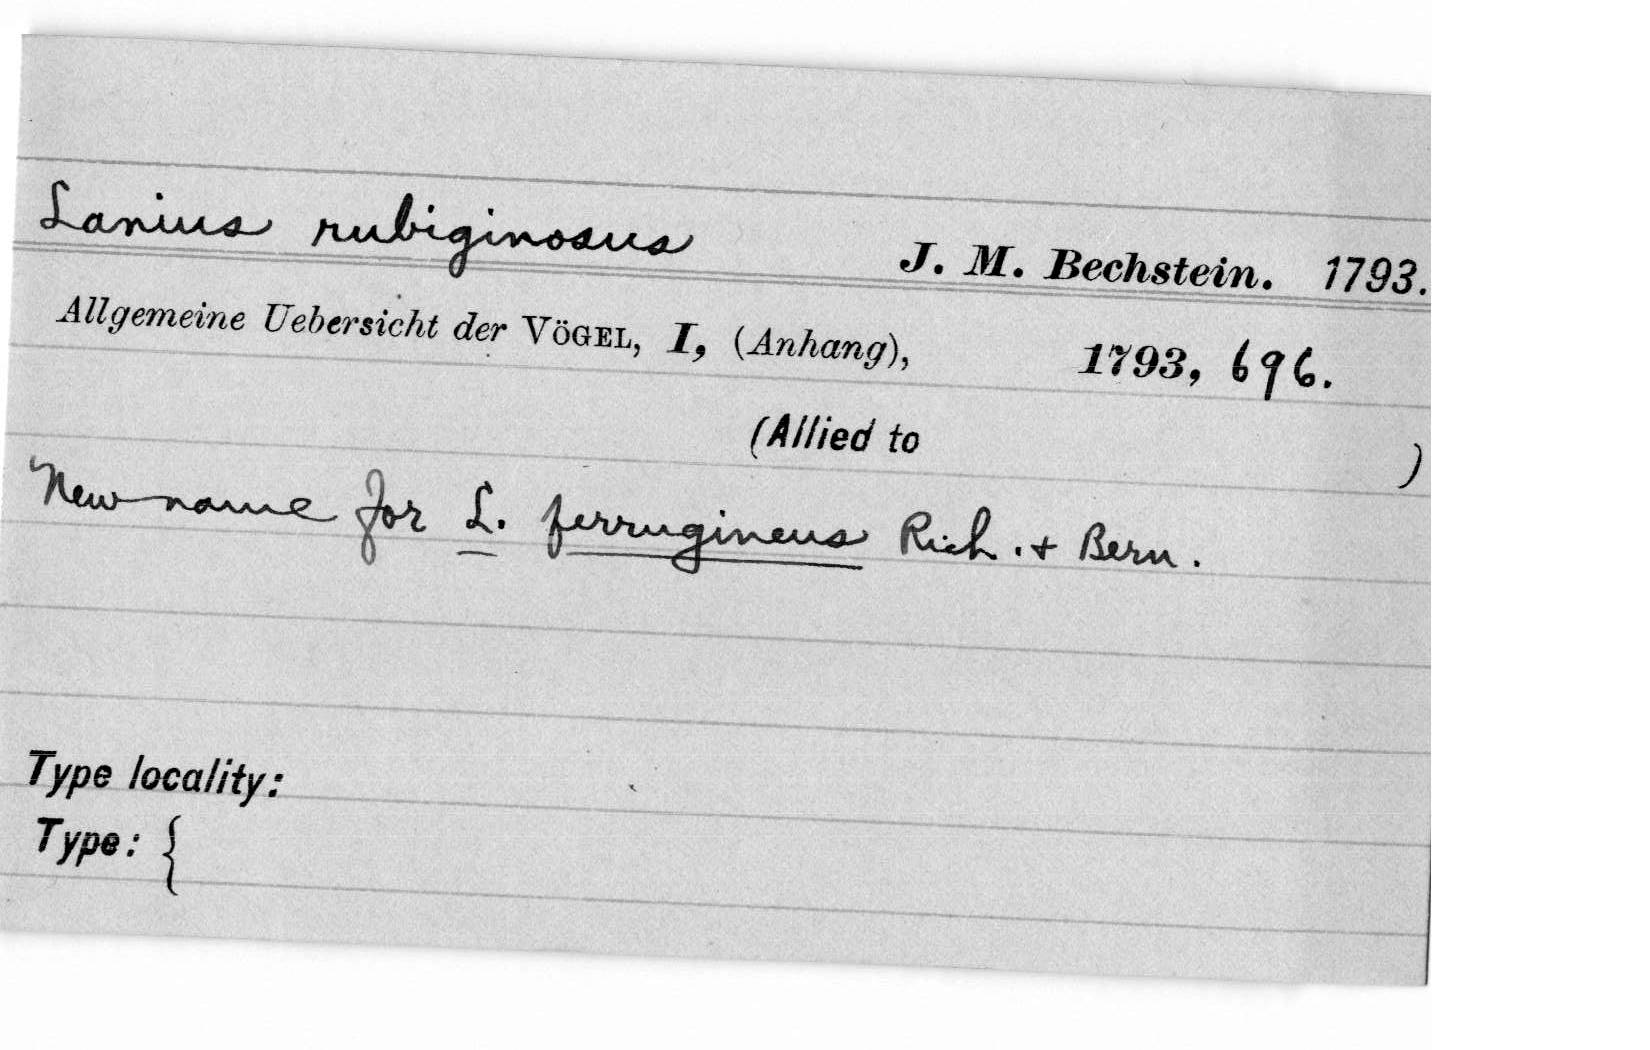 Lanius rubiginosus J. M. Bechstein. 1793.
Allgemeine Uebersicht der VÖGEL, I, (Anhang), 1793, 696.
(Allied to )
New name for L. ferrugineus Rich. + Bern.
Type locality:
Type: {